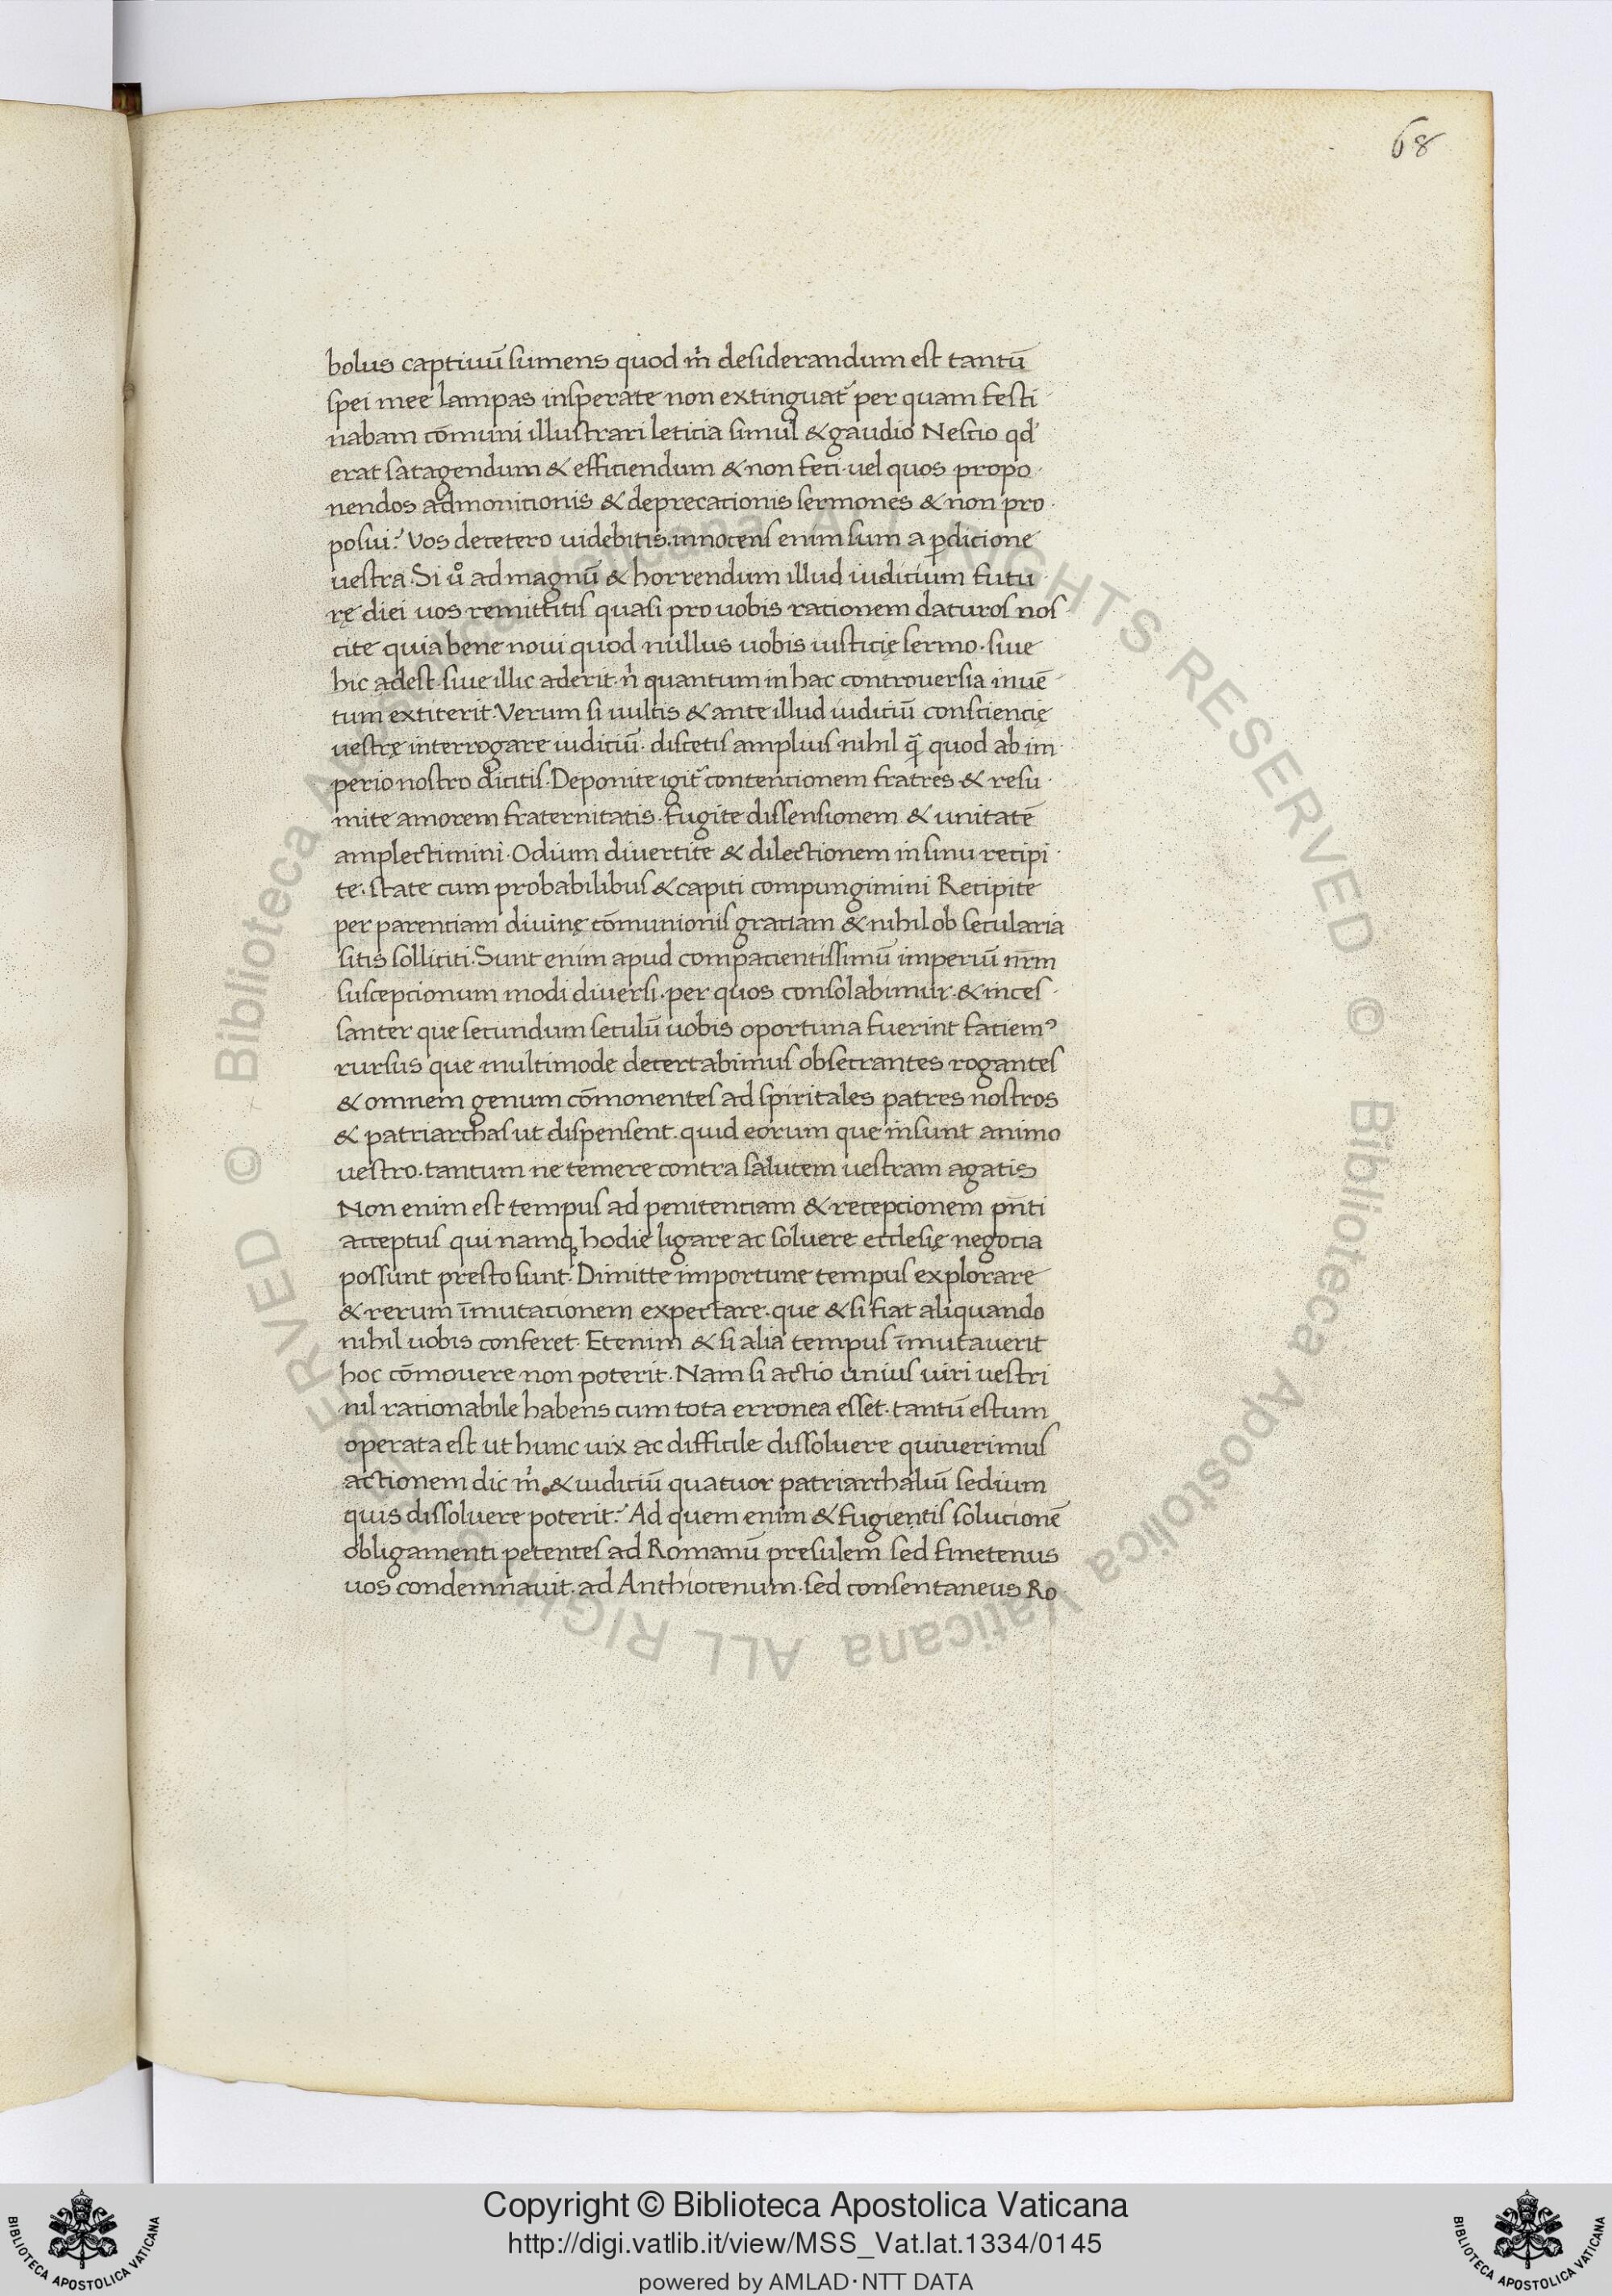 68
bolus captiuū sumens quod m̍ desiderandum est tantū
spei mee lampas insperate non extinguat᷑ per quam festi
nabam cōmuni illustrari leticia simul & gaudio Nescio qd᷑
erat satagendum & efficiendum & non feci· uel quos propo·
nendos admonicionis & deprecationis sermones & non pro·
posui? Vos decetero uidebitis. innocens enim sum a ꝑdicione
uestra. Si uͦ ad magnū & horrendum illud iudicium futu
rę diei uos remittitis quasi pro uobis rationem daturos nos
cite quia bene noui quod nullus uobis iusticię sermo· siue
hic adest· siue illic aderit· n̍ quantum in hac controuersia inuē
tum extiterit. Verum si uultis & ante illud iudiciū consciencię
uestrę interrogare iudiciū· discetis amplius nihil q̄ quod ab im
perio nostro dicitis. Deponite igit᷑ contentionem fratres & resu·
mite amorem fraternitatis. fugite dissensionem & unitatē
amplectimini. Odium diuertite & dilectionem in sinu recipi·
te· state cum probabilibus & capiti compungimini Recipite
per parentiam diuinę cōmunionis gratiam & nihil ob secularia
sitis solliciti. Sunt enim apud compacientissimū imperiū nr̄m
suscepcionum modi diuersi· per quos consolabimur· & inces·
santer que secundum seculū uobis oportuna fuerint faciemꝰ
rursus que multimode decertabimus obsecrantes rogantes
& omnem genum cōmonentes ad spiritales patres nostros
& patriarchas ut dispensent. quid eorum que insunt animo
uestro· tantum ne temere contra salutem uestram agatis
Non enim est tempus ad penitentiam & recepcionem pn̄ti
acceptus qui namqꝫ hodie ligare ac soluere ecclesię negocia
possunt presto sunt. Dimitte importune tempus explorare
& rerum īmutacionem expectare· que & si fiat aliquando
nihil uobis conferet. Etenim & si alia tempus īmutauerit
hoc cōmouere non poterit. Nam si actio unius uiri uestri
nil rationabile habens cum tota erronea esset· tantū estum
operata est ut hunc uix ac difficile dissoluere quiuerimus
actionem dic m̍ & iudiciū quatuor patriarchaliū sedium
quis dissoluere poterit? Ad quem enim & fugientis solucionē
obligamenti petentes ad Romanū presulem sed finetenus
uos condemnauit· ad Anthiocenum· sed consentaneus Ro
© Biblioteca Apostolica Vaticana ALL RIGHTS RESERVED © Biblioteca Apostolica Vaticana ALL RIGHTS RESERVED
BIBLIOTECA APOSTOLICA VATICANA
Copyright © Biblioteca Apostolica Vaticana
http://digi.vatlib.it/view/MSS_Vat.lat.1334/0145
powered by AMLAD·NTT DATA
BIBLIOTECA APOSTOLICA VATICANA